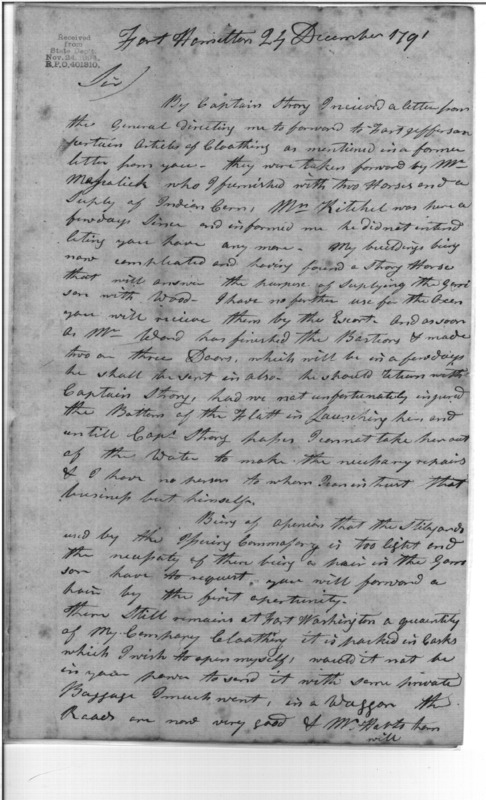 Received
from
State Dept.
R.P.O. 401810.
Fort Hamilton 24 December 1791
Sir
By Captain Strong I recieved a letter from
the General directing me to forward to Fort Jefferson
certain Articles of Cloathing as mentioned in a former
letter from you - they were taken forward by Mr
who I furnished with two Horses and a
Suply of Indian Corn, Mr Kitchel was here a
few days Since and informed me he did not intend
leting you have any more - My buildings being
now compleated and having found a Stray Horse
that will answer the purpose of Suplying the Garri
son with Wood - I have no further use for the Oxen
you will recieve them by the Escort - And as soon
as Mr Ward has finished the Bastions & made
two or three Doors, which will be in a few days
he shall be sent in also he should return with
Captain Strong, had we not unfortunately injured
the Bottom of the Flatt in Launching her, and
untill Capt Strong passes I cannot take her out
of the Water to make the necessary repairs
& I have no person to whom I can instrust that
business but himself.
Being of openion that the Stilyards
used by the Issuing Commissary is too light and
the necessity of there being a pair in the Garri
son have to request, you will forward a
pair by the first opertunity.
there Still remains at Fort Washington a quantity
of My Company Cloathing it is packed in Casks
which I wish to open myself, would it not be
in your power to send it with some private
Baggage I much want, in a Waggon the
Roads are now very good & Mr
will